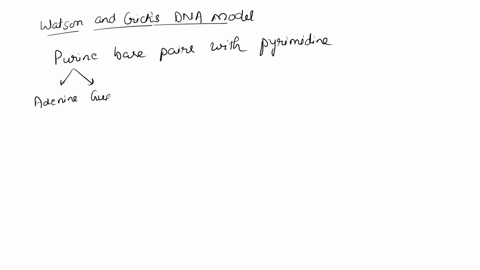 Watson and Crick's DNA Model
Purine base pairs with pyrimidine
Adenine Gua